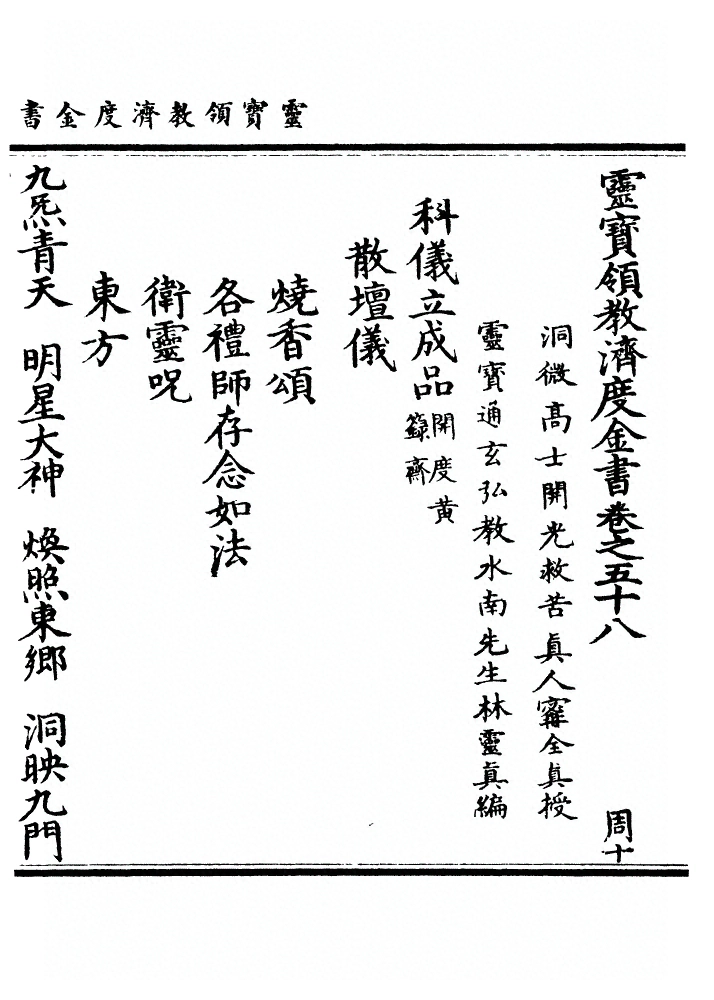 靈寶領教濟度金書
靈寶領教濟度金書卷之五十八 周十
洞微高士開光救苦真人寗全真授
靈寶通玄弘教水南先生林靈真編
科儀立成品 開度黃籙齋
散壇儀
燒香頌
各禮師存念如法
衛靈呪
東方
九炁青天 明星大神 煥照東鄉 洞映九門